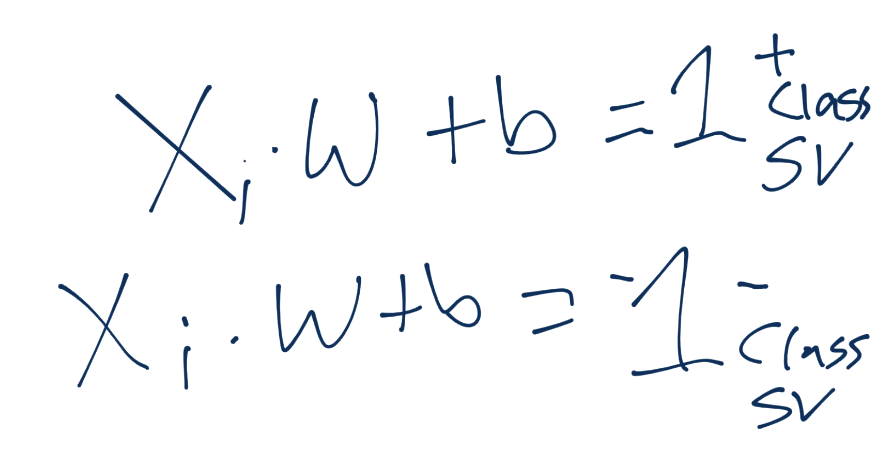 Xi · W + b = 1 + class SV
Xi · W + b = -1 - class SV